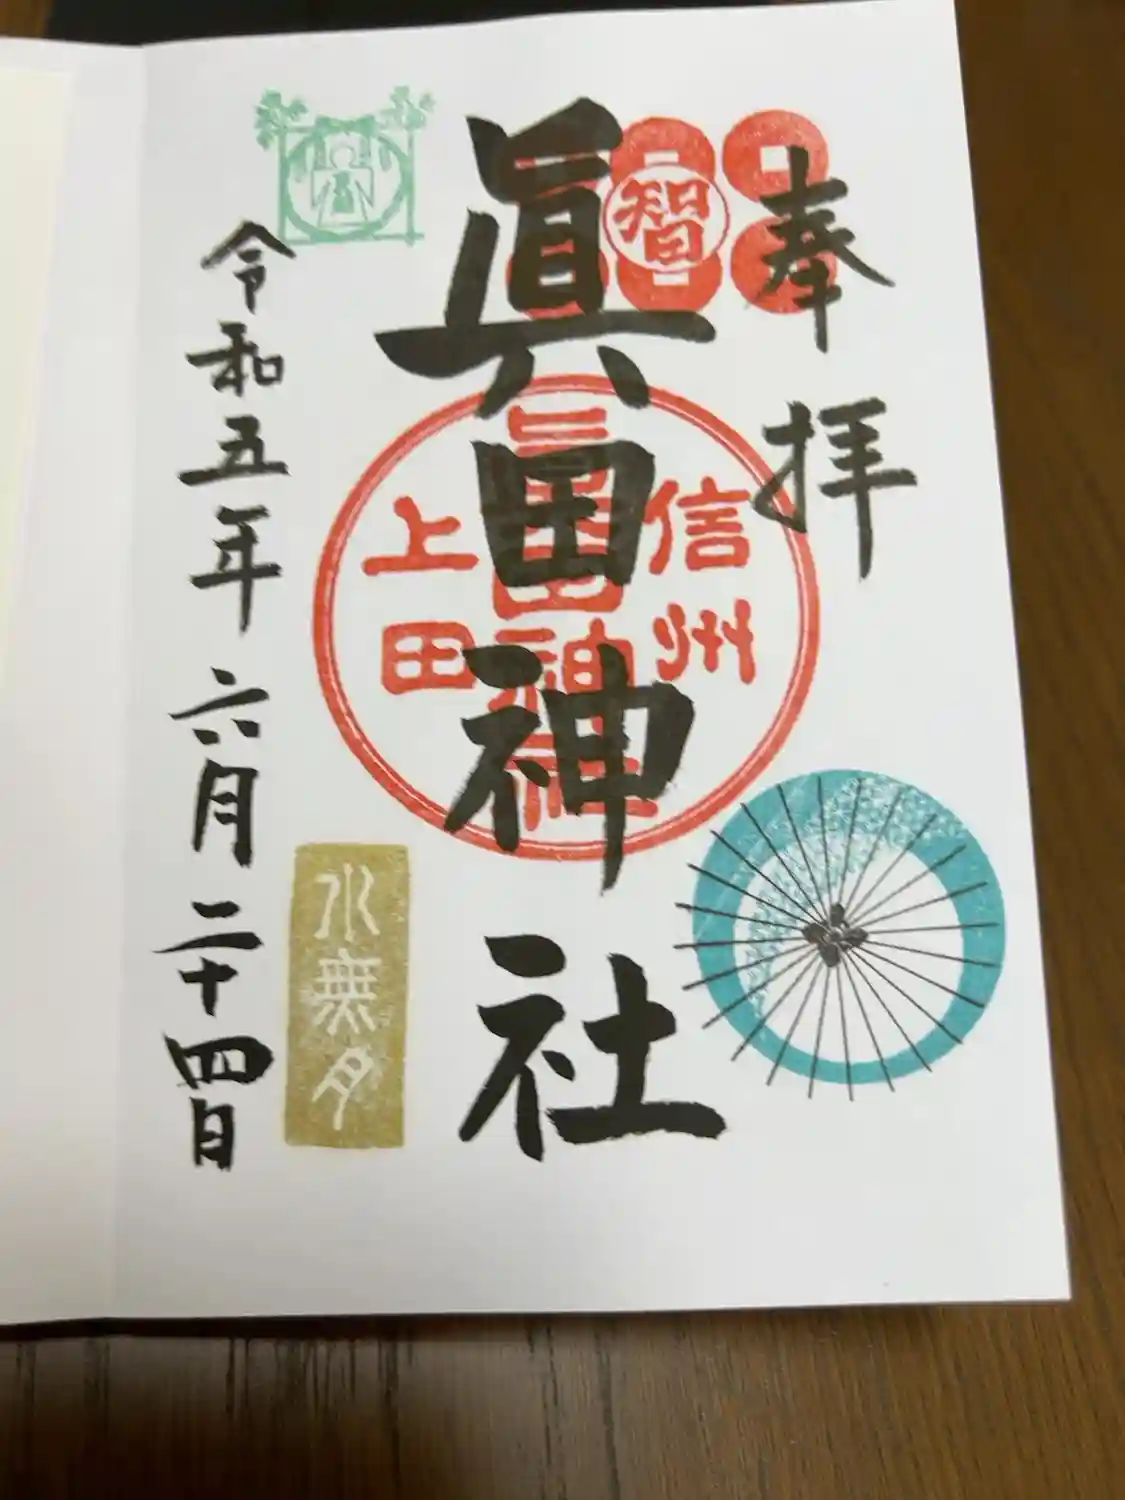 奉拝
智
眞田神社
信州
眞田神社
上田
水無月
令和五年六月二十四日